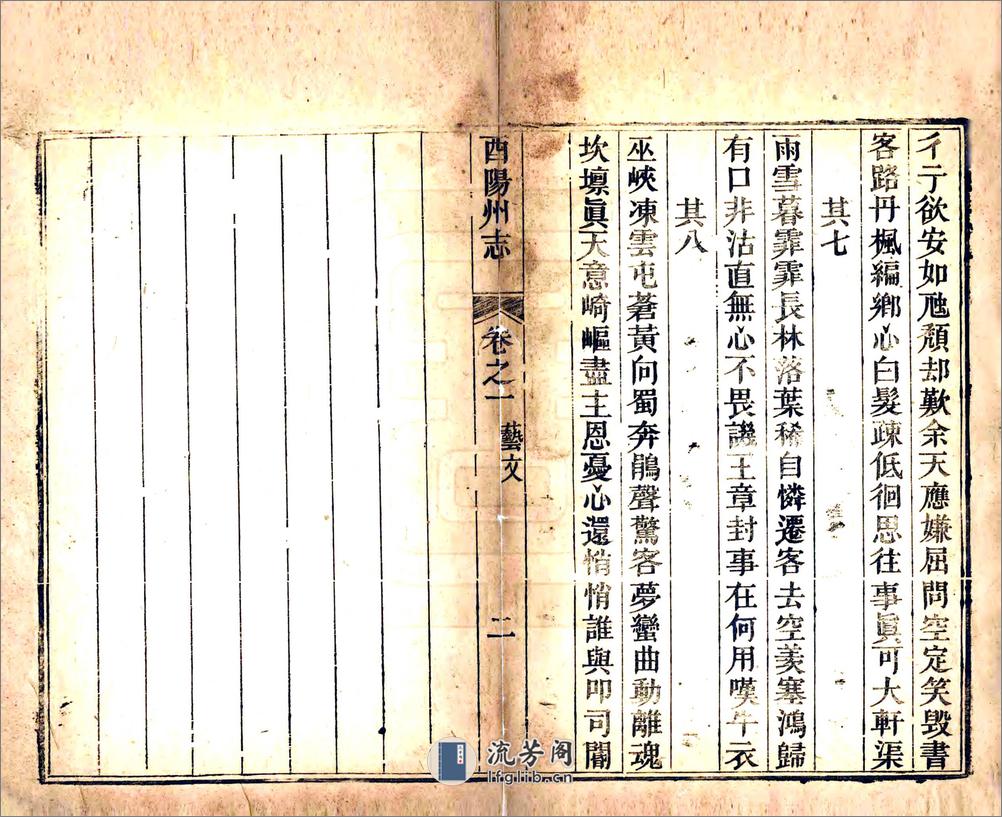 彳亍欲安如虺頹却歎余天應嫌屈問空定笑毀書
客路丹楓編鄉心白髮疎低徊思往事眞可大軒渠
其七
雨雪暮霏霏長林落葉稀自憐遷客去空羨塞鴻歸
有口非沽直無心不畏譏王章封事在何用嘆牛衣
其八
巫峽凍雲屯蒼黃向蜀奔鵑聲驚客夢蠻曲動離魂
坎壈眞天意崎嶇盡主恩憂心還悄悄誰與叩司閽
酉陽州志
卷之一
藝文
二
流芳阁
lfglib.cn